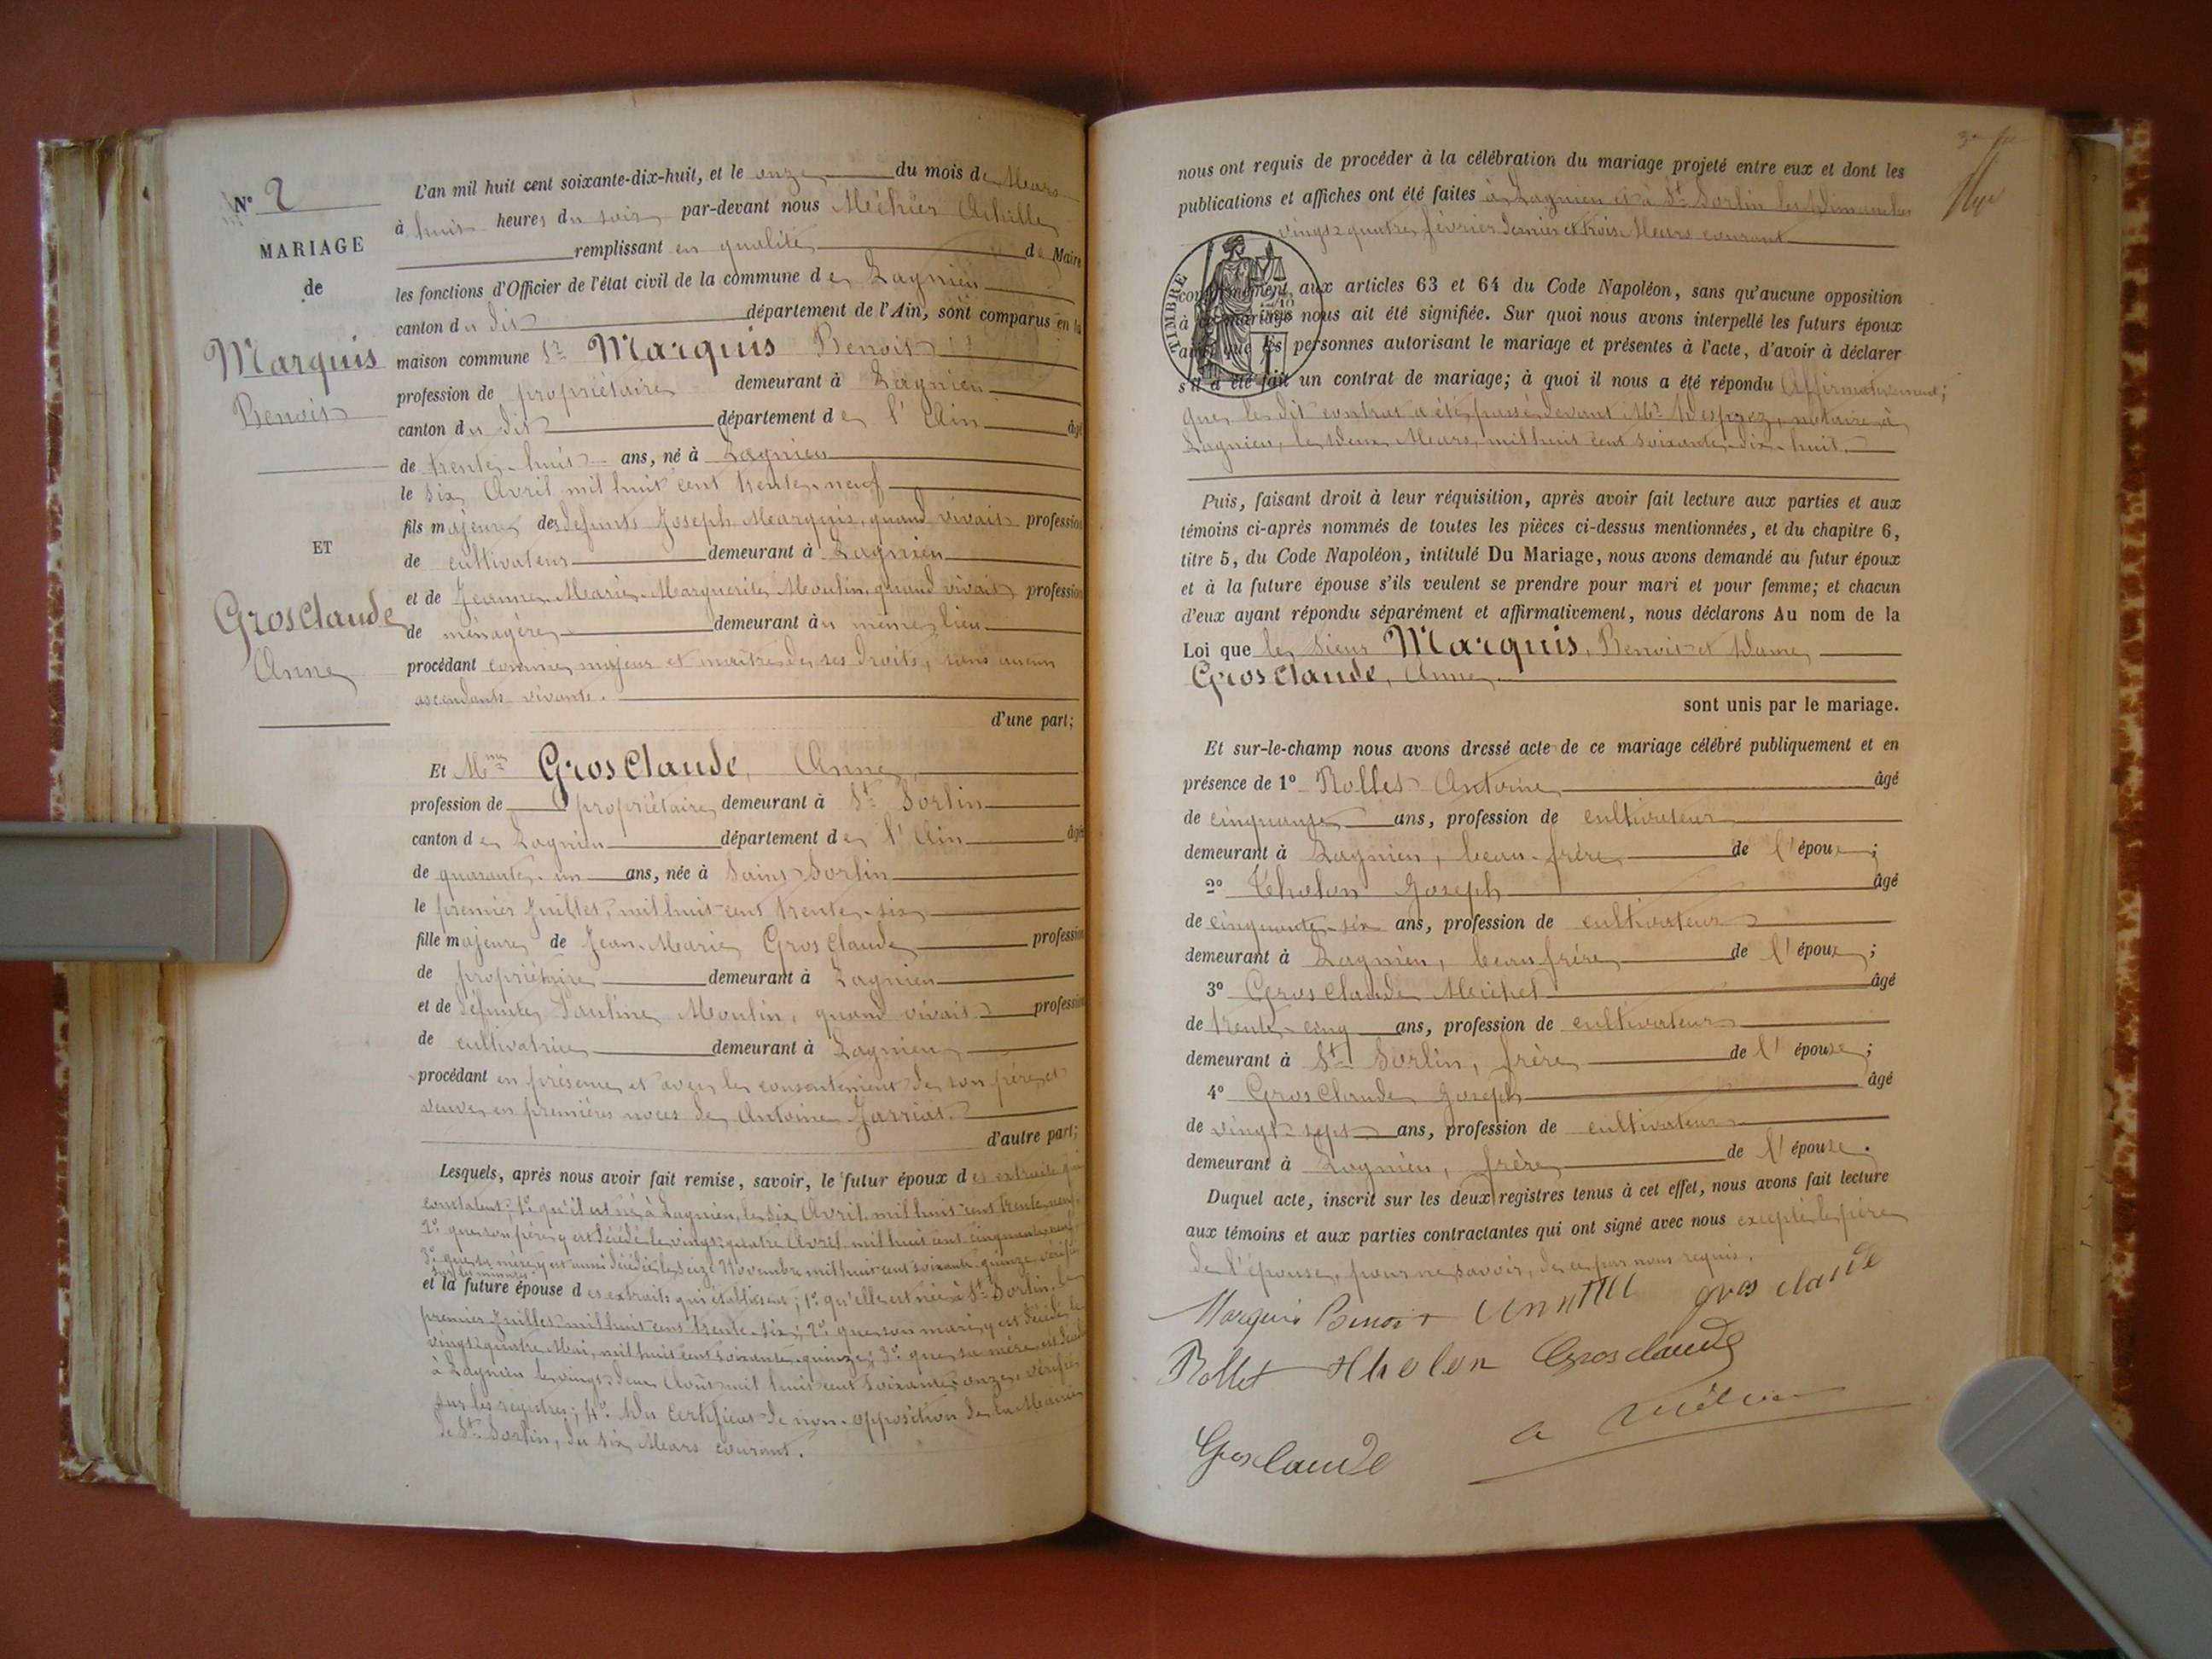 N° 2
MARIAGE
de
Marquis
Benoit
ET
Gros Claude
Anne
L'an mil huit cent soixante-dix-huit, et le onze du mois de Mars
à huit heures du soir par-devant nous Méhier Achille
remplissant en qualité de Maire
les fonctions d'Officier de l'état civil de la commune de Lagnieu
canton du dit département de l'Ain, sont comparus en la
maison commune Sr Marquis Benoit
profession de propriétaire demeurant à Lagnieu
canton du dit département de l'Ain âgé
de trente-huit ans, né à Lagnieu
le six Avril mil huit cent trente-neuf
fils majeur des défunts Joseph Marquis, quand vivait profession
de cultivateur demeurant à Lagnieu
et de Jeanne-Marie-Marguerite Moulin, quand vivait profession
de ménagère demeurant au même lieu
procédant comme majeur et maître de ses droits, sans aucun
ascendants vivants.
d'une part;
Et Mme Gros Claude, Anne,
profession de propriétaire demeurant à St Sorlin
canton de Lagnieu département de l'Ain âgé
de quarante-un ans, née à Saint Sorlin
le premier Juillet, mil huit cent trente-six
fille majeure de Jean-Marie Gros Claude profession
de propriétaire demeurant à Lagnieu
et de défunte Pauline Moulin, quand vivait profession
de cultivatrice demeurant à Lagnieu
procédant en présence et avec le consentement de son père, et
veuve en premières noces de Antoine Jarriat.
d'autre part;
Lesquels, après nous avoir fait remise, savoir, le futur époux des extraits qui
constatent; 1° qu'il est né à Lagnieu, le six Avril mil huit cent trente neuf,
2° que son père y est décédé le vingt-quatre Avril mil huit cent cinquante-neuf,
3° que sa mère y est aussi décédée le seize Novembre mil huit cent soixante-quinze vérifié
sur les minutes.
et la future épouse des extraits qui établissent; 1° qu'elle est née à St Sorlin, le
premier Juillet mil huit cent trente-six; 2° que son mari y est décédé le
vingt-quatre Mai, mil huit cent soixante-quinze; 3° que sa mère est
à Lagnieu le vingt-deux Août mil huit cent soixante-onze, vérifié
sur les registres; 4° Du certificat de non-opposition de la Mairie
de St Sorlin, du six Mars courant.
nous ont requis de procéder à la célébration du mariage projeté entre eux et dont les
publications et affiches ont été faites à Lagnieu et à St Sorlin les Dimanches
vingt-quatre février dernier et trois Mars courant
TIMBRE
conformément aux articles 63 et 64 du Code Napoléon, sans qu'aucune opposition
à ce mariage nous ait été signifiée. Sur quoi nous avons interpellé les futurs époux
ainsi que les personnes autorisant le mariage et présentes à l'acte, d'avoir à déclarer
s'il a été fait un contrat de mariage; à quoi il nous a été répondu Affirmativement;
que le dit contrat a été passé devant Me Desprez, notaire à
Lagnieu, le deux Mars, mil huit cent soixante-dix-huit.
Puis, faisant droit à leur réquisition, après avoir fait lecture aux parties et aux
témoins ci-après nommés de toutes les pièces ci-dessus mentionnées, et du chapitre 6,
titre 5, du Code Napoléon, intitulé Du Mariage, nous avons demandé au futur époux
et à la future épouse s'ils veulent se prendre pour mari et pour femme; et chacun
d'eux ayant répondu séparément et affirmativement, nous déclarons Au nom de la
Loi que le Sieur Marquis, Benoit et Dame
Gros Claude, Anne,
sont unis par le mariage.
Et sur-le-champ nous avons dressé acte de ce mariage célébré publiquement et en
présence de 1° Rollet Antoine âgé
de cinquante ans, profession de cultivateur
demeurant à Lagnieu, beau-frère de l'époux;
2° Tholon Joseph âgé
de cinquante-six ans, profession de cultivateur
demeurant à Lagnieu, beau frère de l'époux;
3° Gros Claude Michel âgé
de trente-cinq ans, profession de cultivateur
demeurant à St Sorlin, frère de l'épouse;
4° Gros Claude Joseph âgé
de vingt-sept ans, profession de cultivateur
demeurant à Lagnieu, frère de l'épouse.
Duquel acte, inscrit sur les deux registres tenus à cet effet, nous avons fait lecture
aux témoins et aux parties contractantes qui ont signé avec nous excepté le père
de l'épouse, pour ne savoir, de ce par nous requis.
Marquis Benoit gros claude
Rollet tholon Gros claude
Gros claude